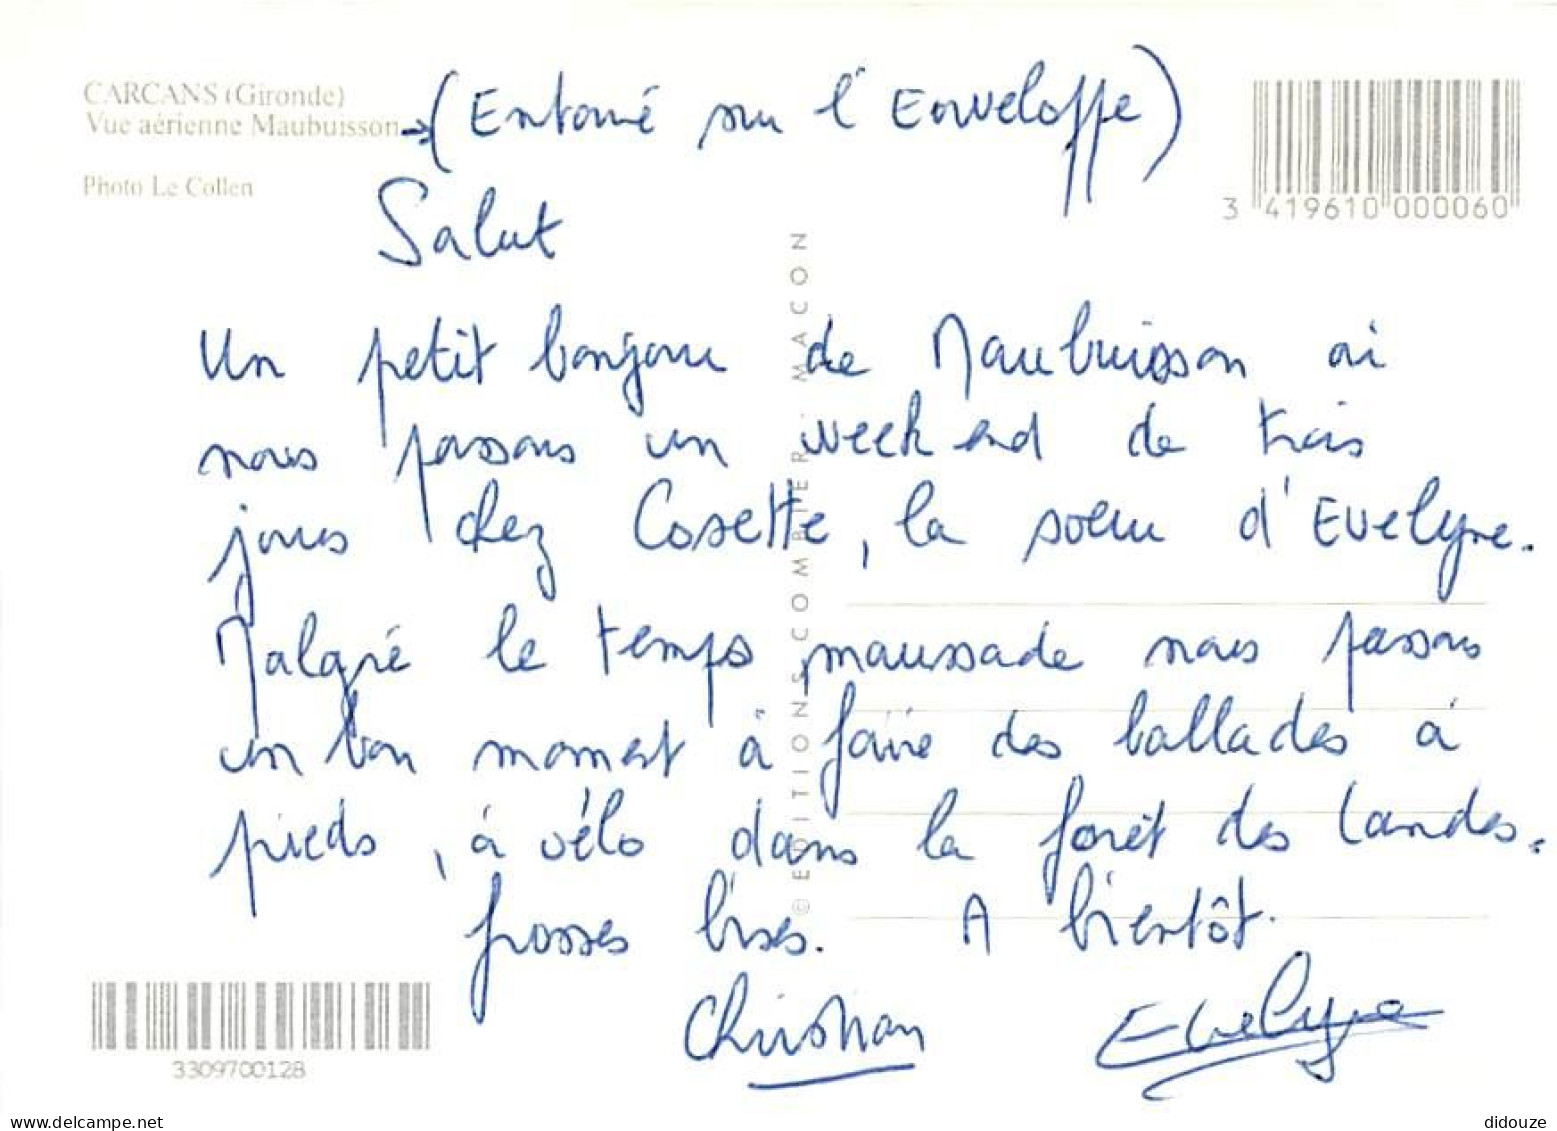 CARCANS (Gironde)
Vue aérienne Maubuisson → (Entouré sur l'Enveloppe)
Photo Le Collen
3 419610 000060
Salut
Un petit bonjour de Maubuisson où
nous passons un week end de trois
jours chez Cosette, la soeur d'Evelyne.
Malgré le temps maussade nous passons
un bon moment à faire des ballades à
pieds, à vélo dans la forêt des Landes.
Grosses bises. A bientôt.
Christian Evelyne
© EDITIONS COMBIER MACON
3309700128
didouze